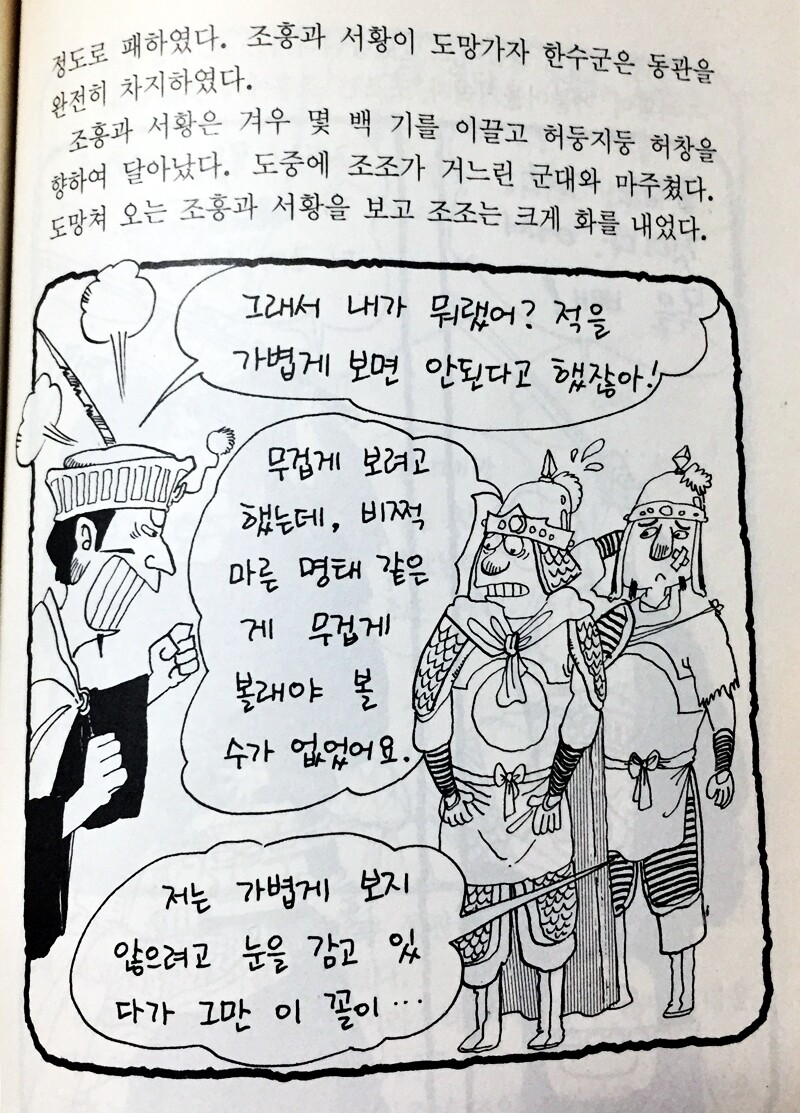 정도로 패하였다. 조홍과 서황이 도망가자 한수군은 동관을
완전히 차지하였다.
조홍과 서황은 겨우 몇 백 기를 이끌고 허둥지둥 허창을
향하여 달아났다. 도중에 조조가 거느린 군대와 마주쳤다.
도망쳐 오는 조홍과 서황을 보고 조조는 크게 화를 내었다.
그래서 내가 뭐랬어? 적을
가볍게 보면 안된다고 했잖아!
무겁게 보려고
했는데, 비쩍
마른 명태 같은
게 무겁게
볼래야 볼
수가 없었어요.
저는 가볍게 보지
않으려고 눈을 감고 있
다가 그만 이 꼴이…